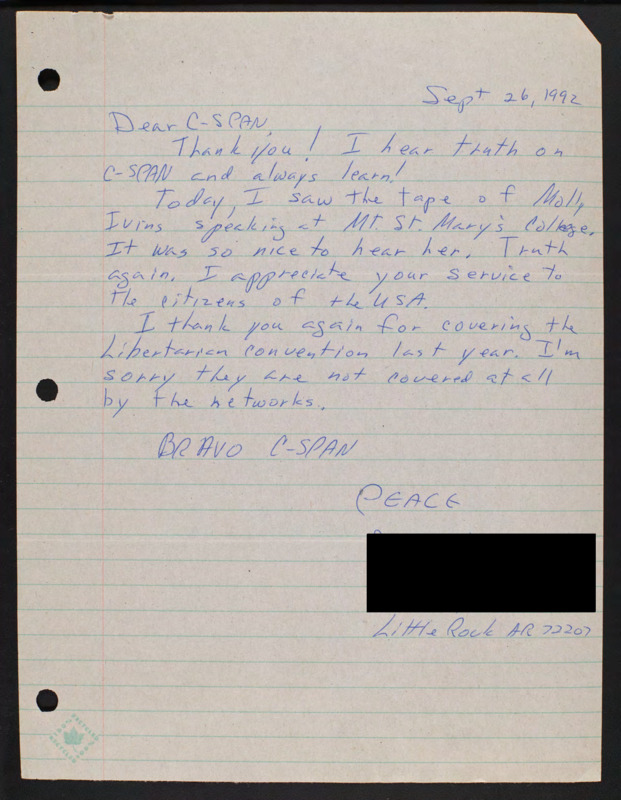 Sept 26, 1992
Dear C-SPAN,
Thank you! I hear truth on
C-SPAN and always learn!
Today, I saw the tape of Molly
Ivins speaking at Mt. St. Mary's College.
It was so nice to hear her. Truth
again. I appreciate your service to
the citizens of the USA.
I thank you again for covering the
Libertarian convention last year. I'm
sorry they are not covered at all
by the networks.
BRAVO C-SPAN
PEACE
Little Rock AR 72207